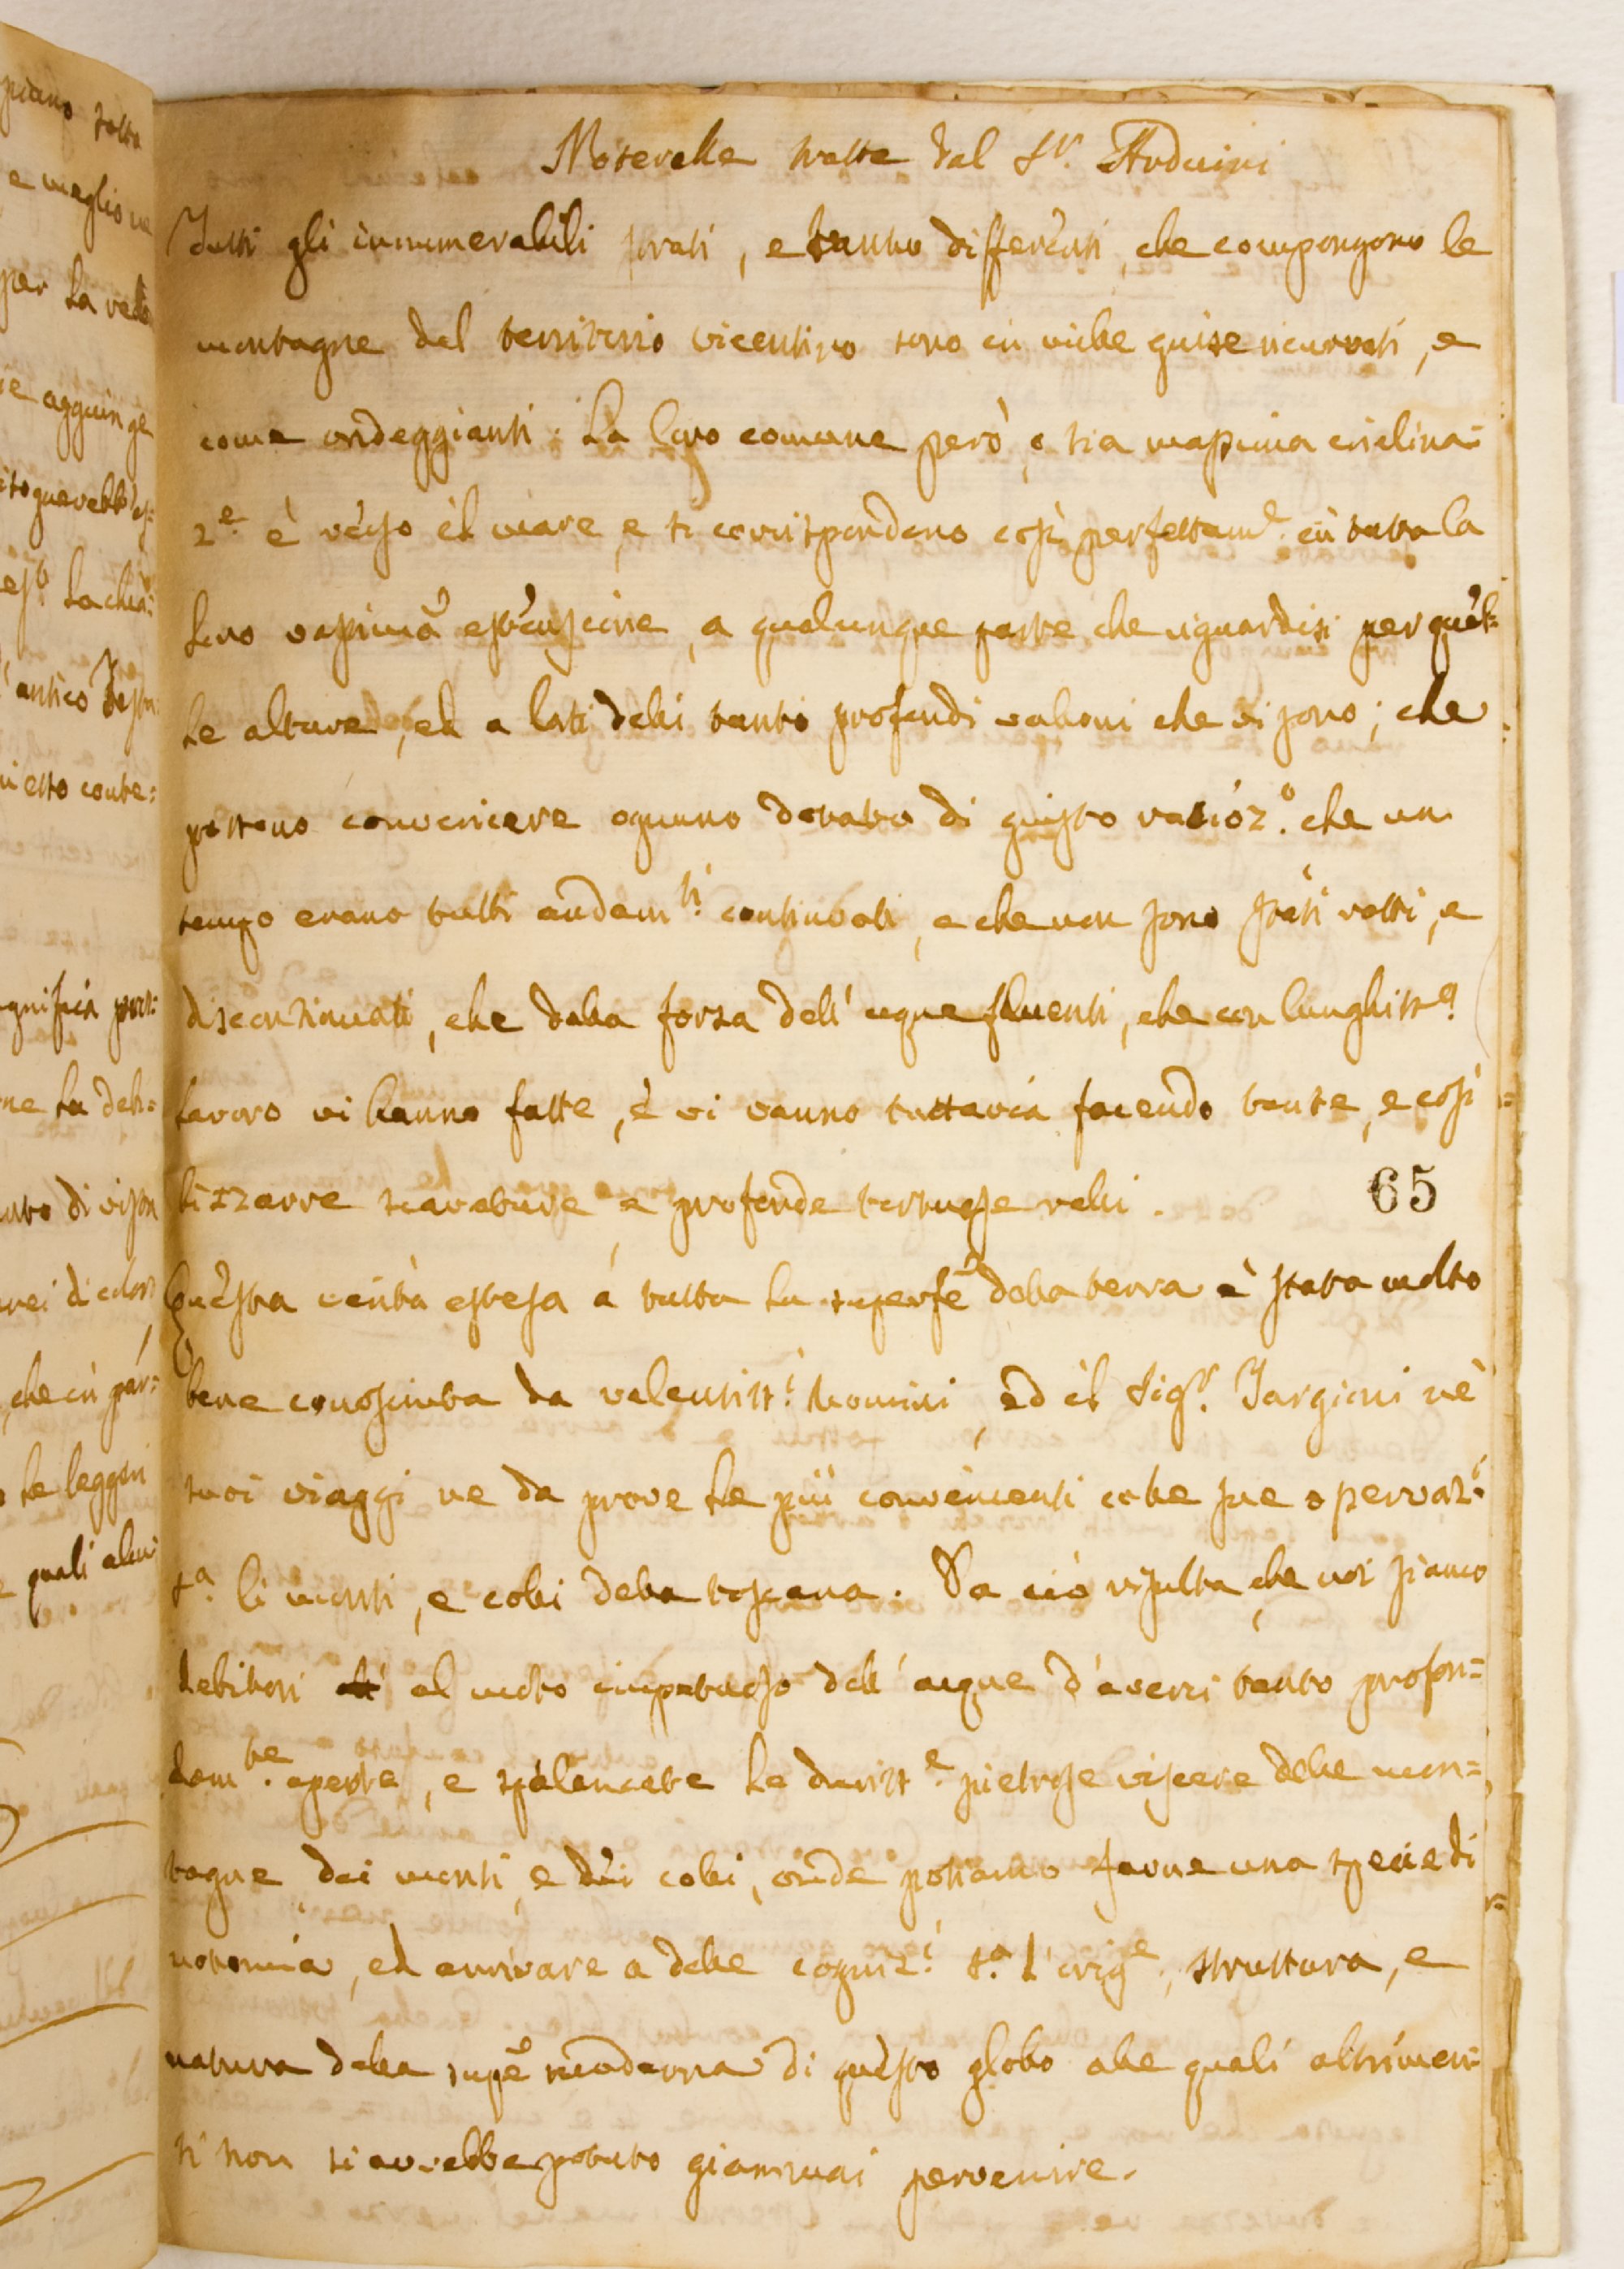 Noterelle tratte dal Sr. Arduini
Tutti gli innumerabili strati, e tanto differenti, che compongono le
montagne del territorio vicentino sono in mille guise ricurvati, e
come ondeggianti. La loro comune però, o sia massima inclina=
z.e è verso il mare, e si corrispondono così perfettam.e in tutta la
loro vastissima estensione, a qualunque parte che riguardisi per quel=
le alture, ed a lati delli tanto profondi valloni che vi sono; che
possono convincere ognuno dotato di giusto razioz.o che un
tempo erano tutti andam.ti continuati, e che non sono stati rotti, e
discontinuati, che dalla forza dell'acque fluenti, che con lunghiss.o
lavoro vi hanno fatte, e vi vanno tuttavia facendo tante, e così
bizzarre scavature e profonde tortuose valli.
65
Questa verità estesa a tutta la superfe della terra è stata molto
bene conosciuta da valentiss.i Uomini, ed il Sigr. Targioni ne
suoi viaggi ne da prove le più convincenti colle sue osservaz.i
s.a li monti, e colli della toscana. Da ciò risulta, che noi siamo
debitori al moto impetuoso dell'acque d'averci tanto profon=
dam.te aperte, e spalancate le duriss.e pietrose viscere delle mon=
tagne dei monti, e dei colli, onde possiamo farne una specie di
notomia, ed arrivare a delle cogniz.i s.a l'orig.e, struttura, e
natura della supe moderna di questo globo alle quali altrimen=
ti non si avrebbe potuto giammai pervenire.